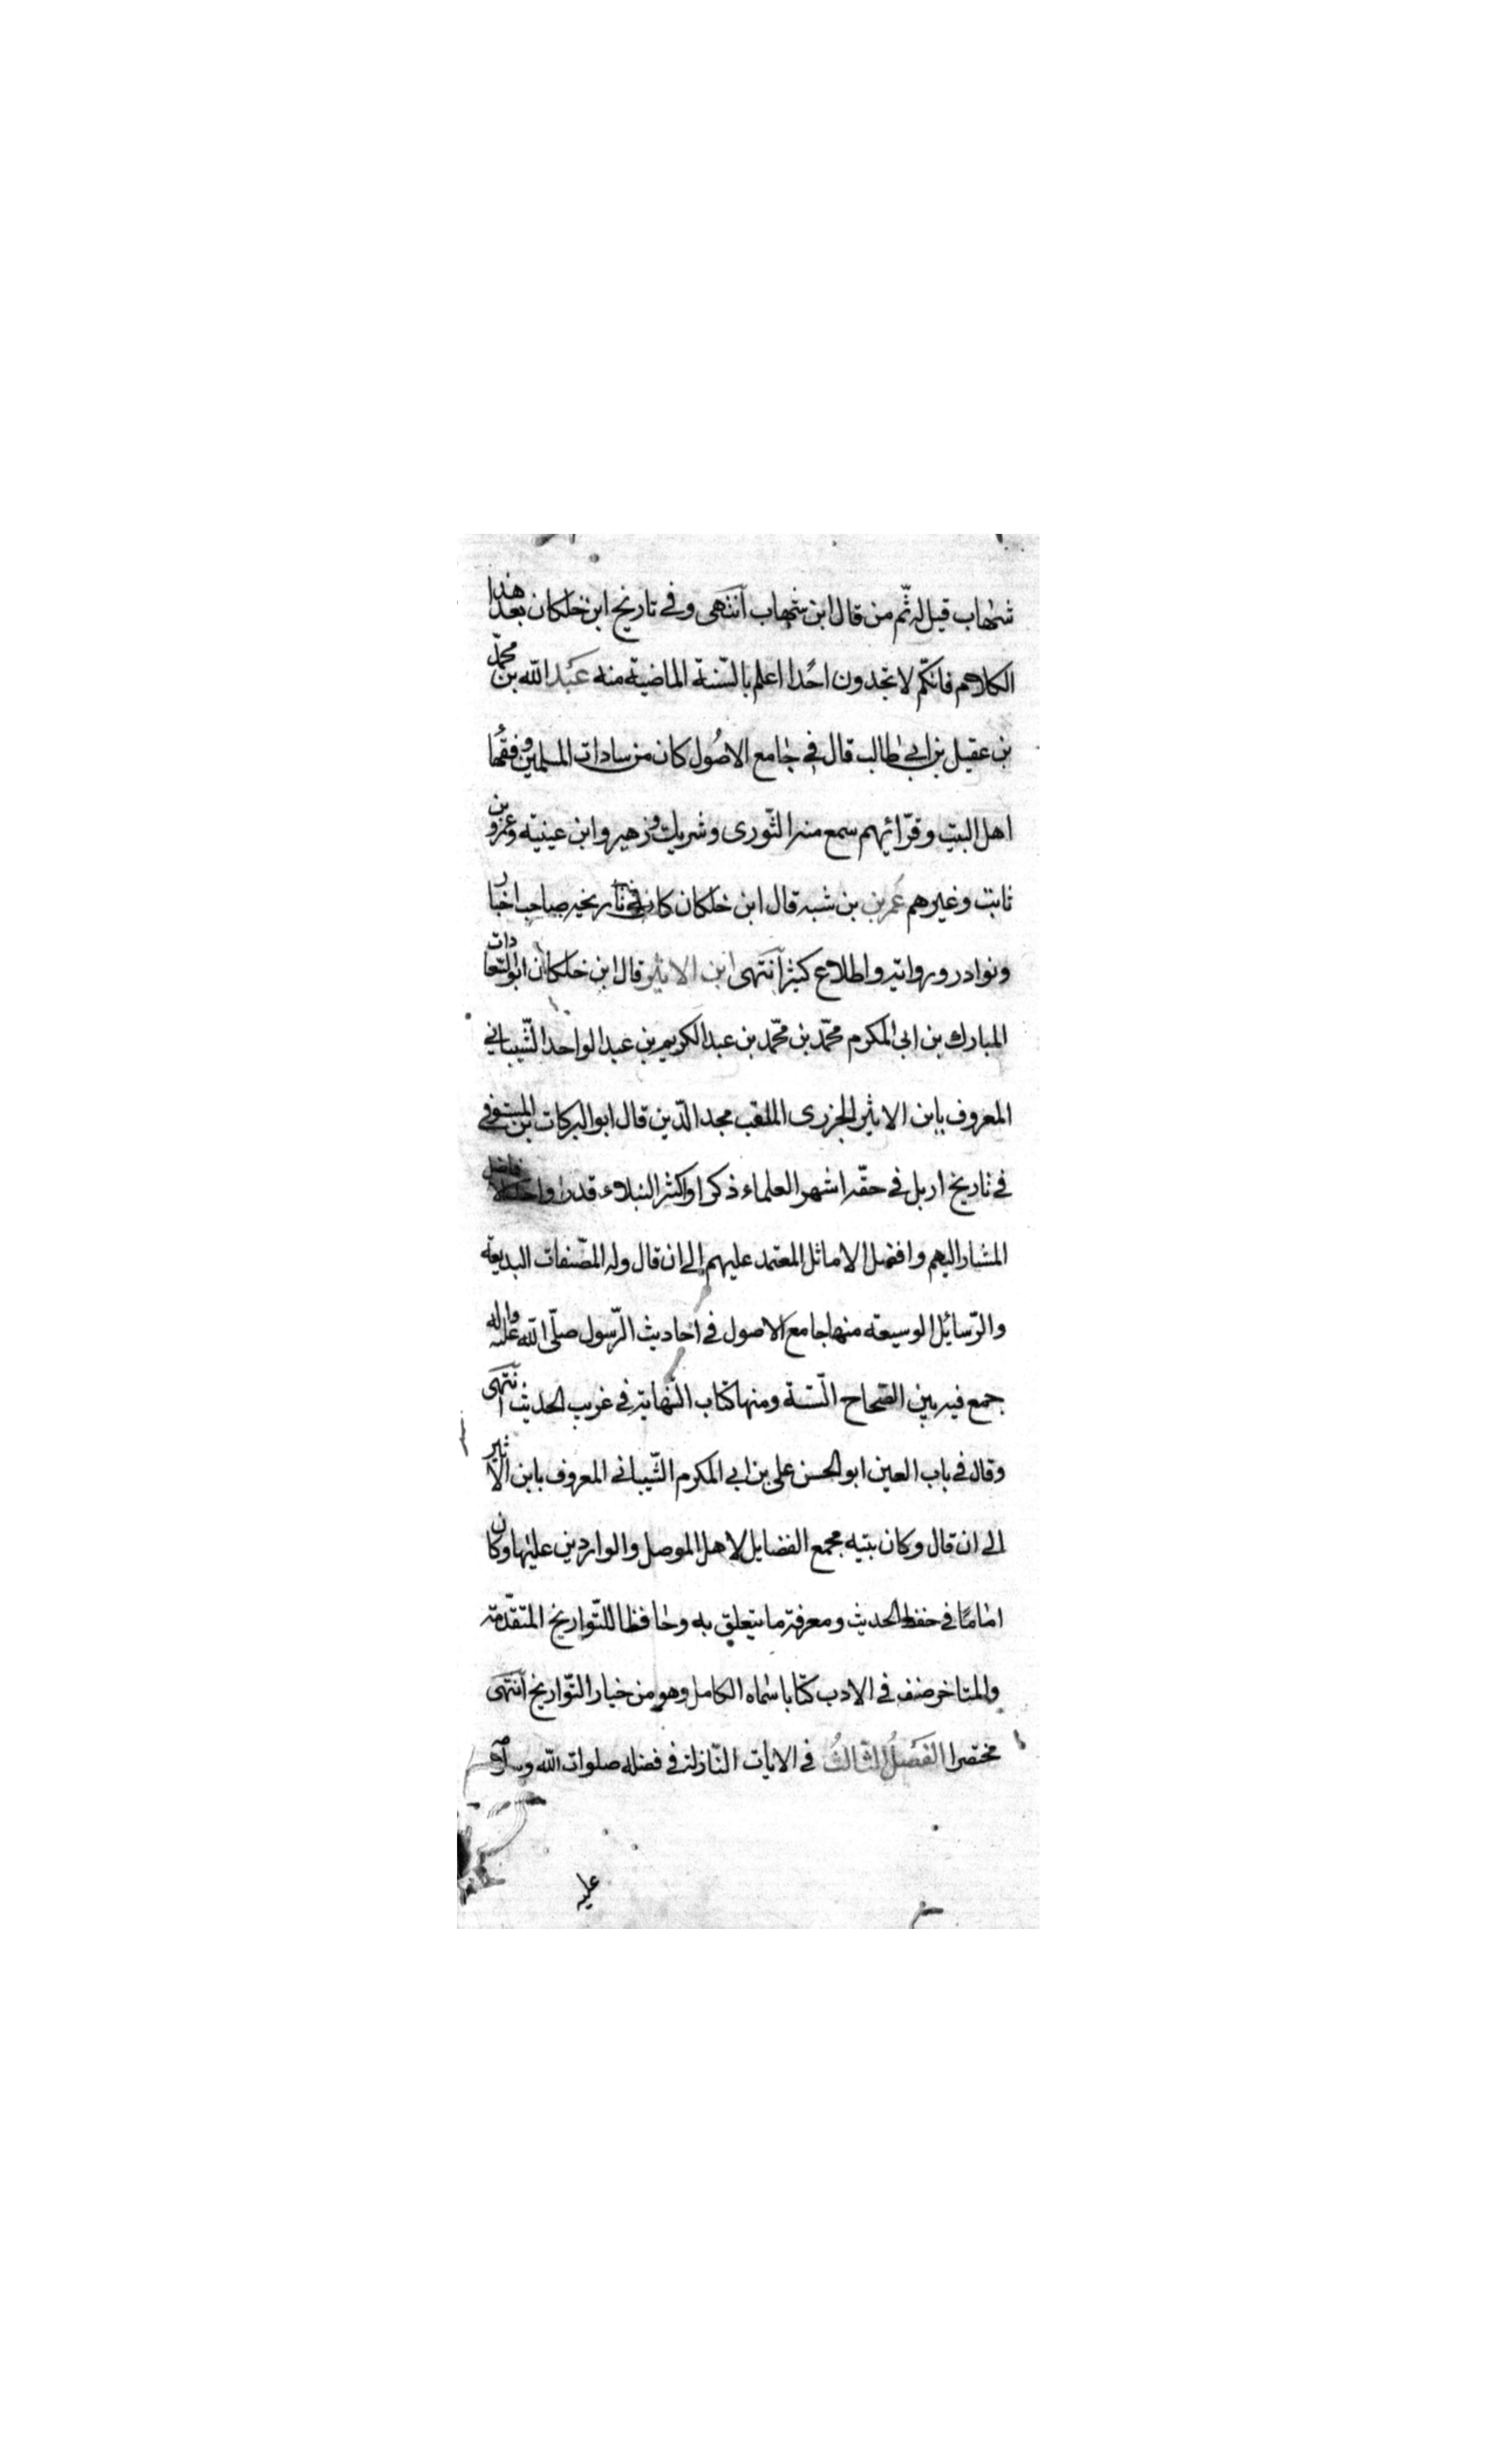 شهاب قيل له ثمّ من قال ابن شهاب انتهى وفي تاريخ ابن خلكان بعد هذا
الكلام فانكم لا تجدون احدا اعلم بالسّنة الماضية منه عبد الله بن محمّد
بن عقيل بن ابي طالب قال في جامع الاصول كان من سادات المسلمين وفقهاء
اهل البيت وقرّائهم سمع منه الثّورى وشريك وزهير وابن عينيه وعمرو بن
ثابت وغيرهم عمر بن شبه قال ابن خلكان كان في تاريخه صاحب اخبار
ونوادر ورواية واطلاع كثير انتهى ابن الاثير قال ابن خلكان ابو السّعادات
المبارك بن ابي المكرم محمّد بن محمّد بن عبد الكريم بن عبد الواحد الشّيباني
المعروف بابن الاثير الجزرى الملقب مجد الدّين قال ابو البركات بن المستوفي
في تاريخ اربل في حقّه اشهر العلماء ذكرا واكثر النبلاء قدرا واحد الافاضل
المشار اليهم وافضل الاماثل المعتمد عليهم إلى ان قال وله المصّنفات البديعة
والرّسائل الوسيعة منها جامع الاصول في احاديث الرّسول صلّى الله عليه واله
جمع فيه بين الصّحاح السّتة ومنها كتاب النّهاية في غريب الحديث انتهى
وقال في باب العين ابو الحسن على بن ابي المكرم الشّيباني المعروف بابن الاثير
الى ان قال وكان بيته مجمع الفضايل لاهل الموصل والواردين عليها وكان
امامًا في حفظ الحديث ومعرفة ما يتعلق به وحافظا للتّواريخ المتقدّمة
والمتاخر صنف في الادب كتابا سماه الكامل وهو من خيار التّواريخ انتهى
مختصرا الفصل الثّالث في الايات النّازلة في فضله صلوات الله وسلامه
عليه